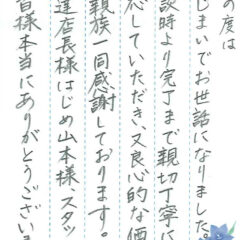 の度は
じまいでお世話になりました。
談時より完了まで親切丁寧に
応していただき、又良心的な価
親族一同感謝しております。
達店長様はじめ山本様、スタッ
皆様本当にありがとうござい